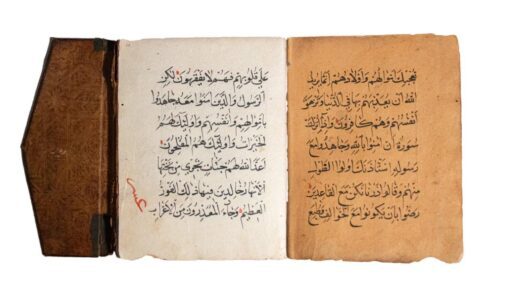 تعجبك اموالهم واولادهم انما يريد
الله ان يعذبهم بها في الدنيا وتزهق
انفسهم وهم كافرون واذا انزلت
سورة ان امنوا بالله وجاهدوا مع
رسوله استاذنك اولوا الطول
منهم وقالوا ذرنا نكن مع القاعدين
رضوا بان يكونوا مع الخوالف وطبع
على قلوبهم فهم لا يفقهون لكن
الرسول والذين امنوا معه جاهدوا
باموالهم وانفسهم واولئك لهم
الخيرات واولئك هم المفلحون
اعد الله لهم جنات تجري من تحتها
الانهار خالدين فيها ذلك الفوز
العظيم وجاء المعذرون من الاعراب